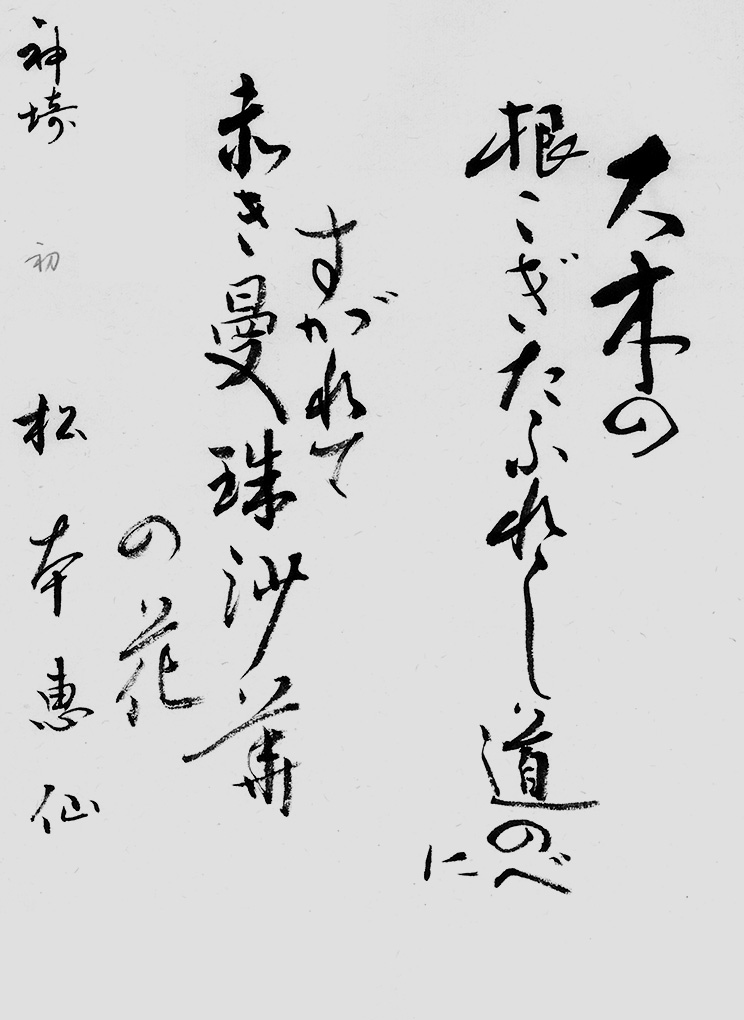 大木の
根こぎたふれし道のべ
に
すがれて
赤き曼珠沙華
の花
神埼 初 松本恵仙